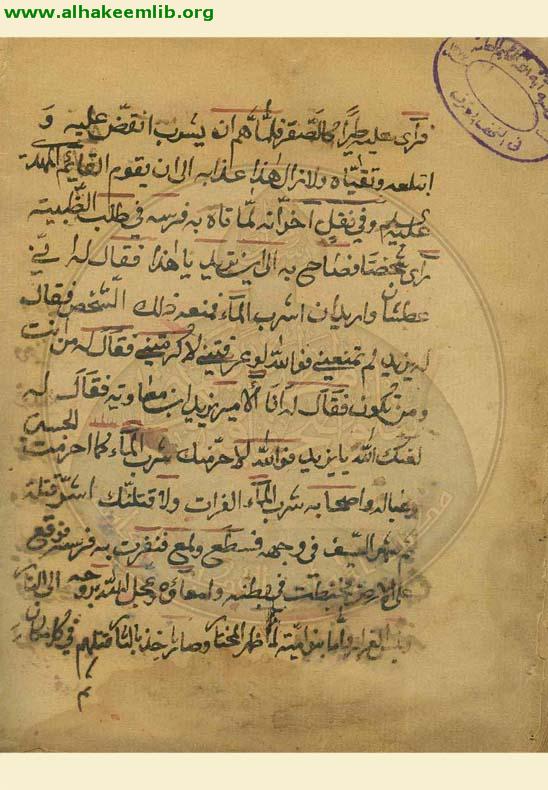 www.alhakeemlib.org
فرآى عليه طيرًا كالصّقر فلمّا همّ ان يشرب انقضّ عليه و
ابتلعه وتقيّاه ولا زال هذا عذابه الى ان يقوم القائم المهد
عليه السلم وفي نقلٍ آخر انّه لمّا تاه به فرسه في طلب الظّبيه
رآى شخصًا فصاح به الى اين تريد يا هذا فقال له انّي
عطشان واريد ان اشرب المآء فمنعه ذلك الشّخص فقال
له يزيد لم تمنعيني فوالله لو عرفتيني لاكرمتيني فقال له من انت
ومن تكون فقال له انا الامير يزيد ابن معاويه فقال له
لعنك الله يا يزيد فوالله لاحرمنك شرب المآء كما احرمت الحسين
وعياله واصحابه شرب المآء الفرات ولاقتلنّك اشرّ قتلة
ثم شهر السّيف في وجهه فسطع ولمع فنفرت به فرسه فوقع
على الارض فخبطت في بطنه وامعاؤه وعجل الله بروحه الى النار
وبئس القرار وامّا بنو اميّة لمّا ظهر المختار وصار ياخذ بالثار قتلهم في كل مكان